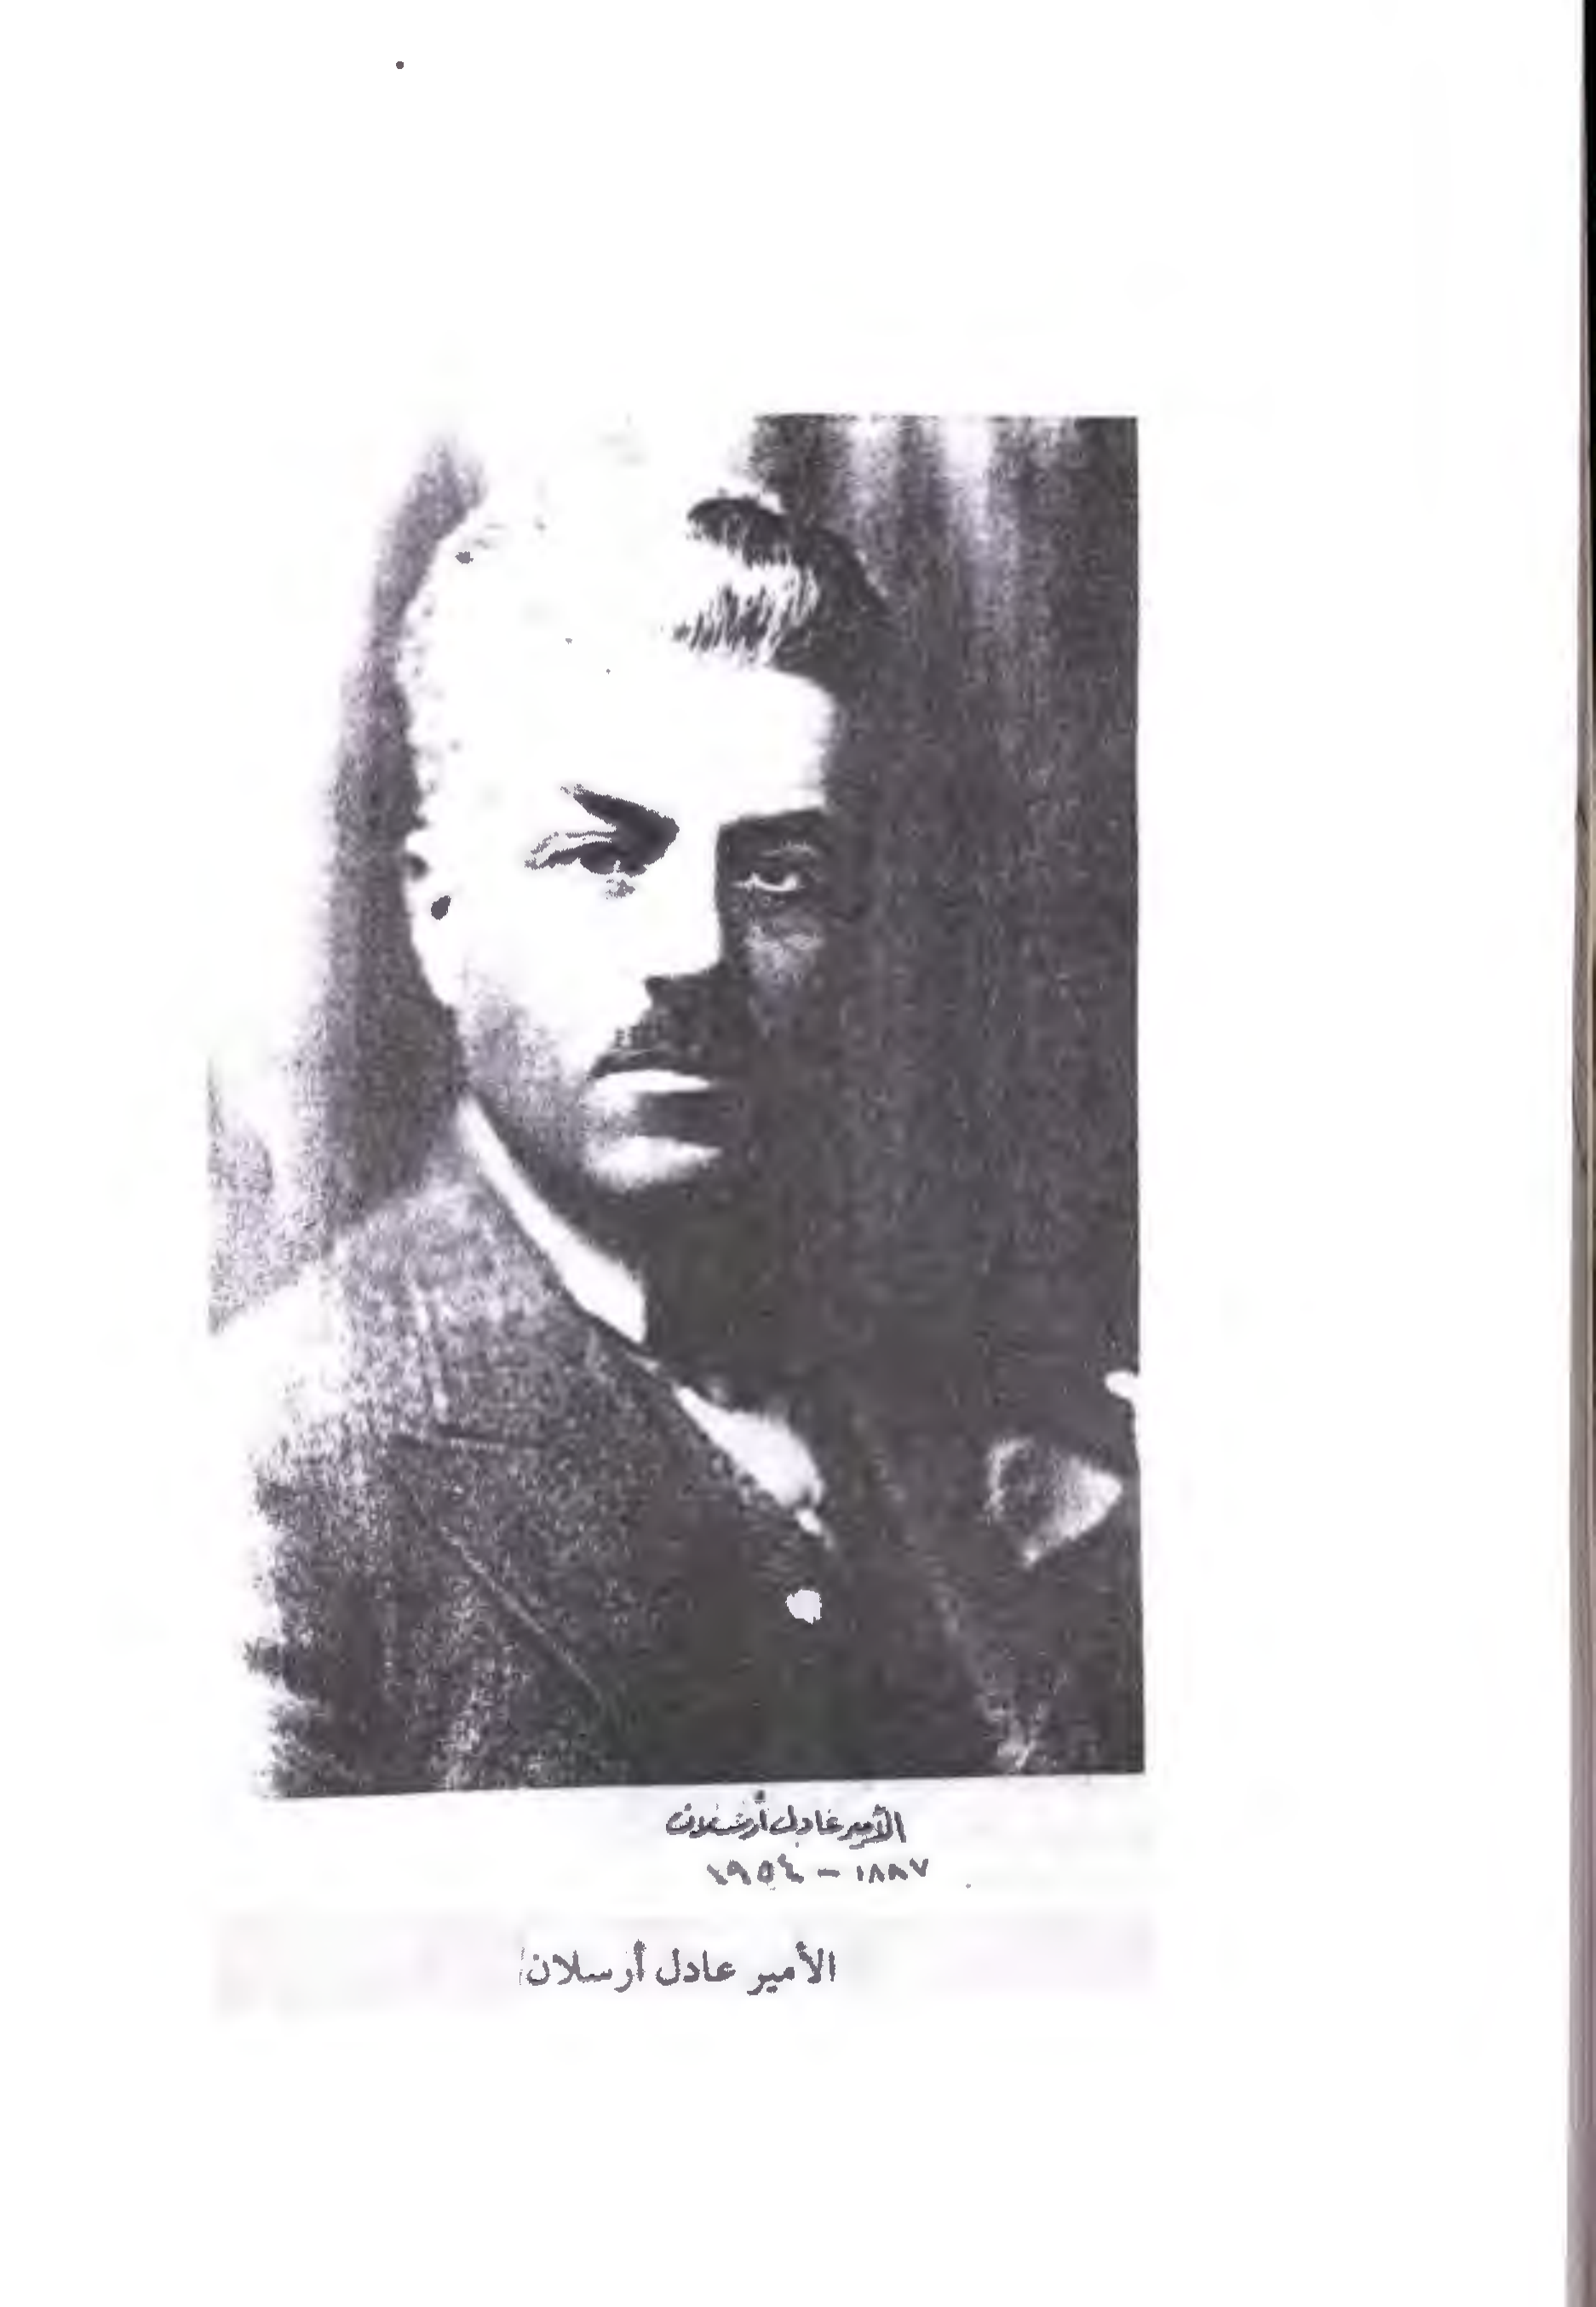 الأمير عادل أرسلان
١٨٨٧ - ١٩٥٤
الأمير عادل أرسلان